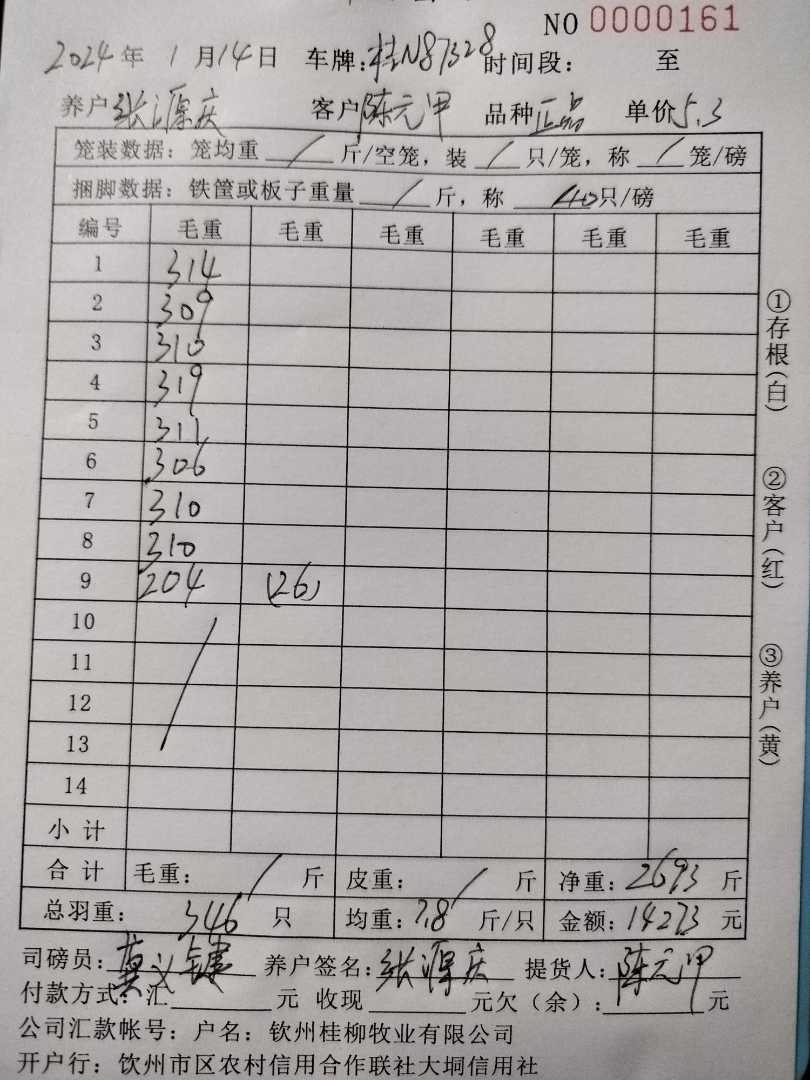 NO 0000161
2024年 1月14日 车牌:桂N87328 时间段: 至
养户张源庆 客户陈元甲 品种正品 单价5.3
笼装数据: 笼均重 / 斤/空笼, 装 / 只/笼, 称 / 笼/磅
捆脚数据: 铁筐或板子重量 / 斤, 称 40只/磅
编号 毛重 毛重 毛重 毛重 毛重 毛重
1 314
2 309
3 310
4 319
5 311
6 306
7 310
8 310
9 204 (26)
10
11
12
13
14
小计
合计 毛重: / 斤 皮重: / 斤 净重: 2693 斤
总羽重: 346 只 均重: 7.8 斤/只 金额: 14273 元
司磅员: 莫义 养户签名: 张源庆 提货人: 陈元甲
付款方式: 汇 元 收现 元欠(余): 元
公司汇款帐号: 户名: 钦州桂柳牧业有限公司
开户行: 饮州市区农村信用合作联社大垌信用社
①存根(白)
②客户(红)
③养户(黄)